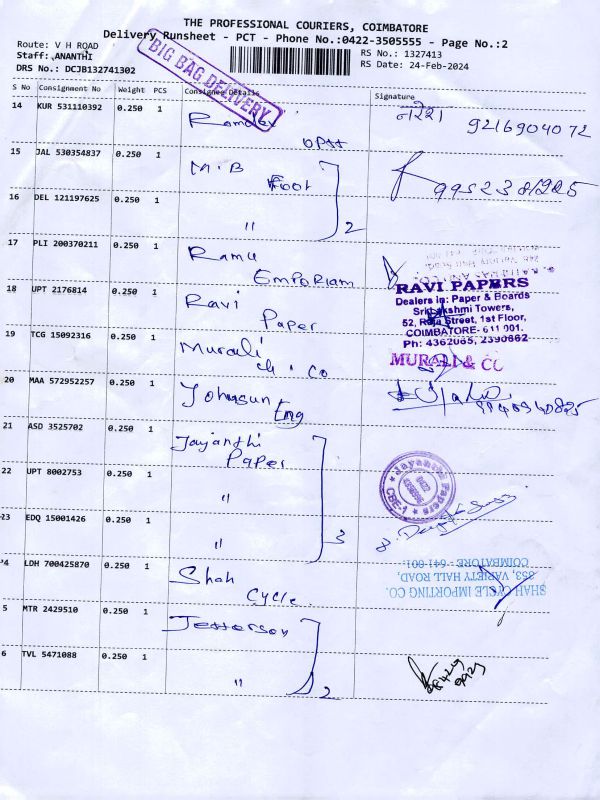 THE PROFESSIONAL COURIERS, COIMBATORE
Delivery Runsheet - PCT - Phone No.:0422-3505555 - Page No.:2
Route: V H ROAD
RS No.: 1327413
Staff: ANANTHI
RS Date: 24-Feb-2024
DRS No.: DCJB132741302
BIG BAG DELIVERY
S No Consignment No Weight PCS Consignee Details Signature
14 KUR 531110392 0.250 1 Ramdev
नरेश 9216904072
15 JAL 530354837 0.250 1 M.B
Foot
16 DEL 121197625 0.250 1 " 2
17 PLI 200370211 0.250 1 Ramu
Emporiam
18 UPT 2176814 0.250 1 Ravi
Paper
RAVI PAPERS
Dealers in: Paper & Boards
Sri Lakshmi Towers,
52, Raja Street, 1st Floor,
COIMBATORE- 611 001.
Ph: 4362065, 2390662
19 TCG 15092316 0.250 1 Murali
ch. Co
MURALI & CO
20 MAA 572952257 0.250 1 Johnsun
Eng
21 ASD 3525702 0.250 1 Jayanthi
Paper
Jayanthi Papers
CBE-1
22 UPT 8002753 0.250 1 "
23 EDQ 15001426 0.250 1 " 3
24 LDH 700425870 0.250 1 Shah
Cycle.
SHAH CYCLE IMPORTING CO.
353, VARIETY HALL ROAD,
COIMBATORE - 641-001.
5 MTR 2429510 0.250 1 Jefferson
6 TVL 5471088 0.250 1 " 2